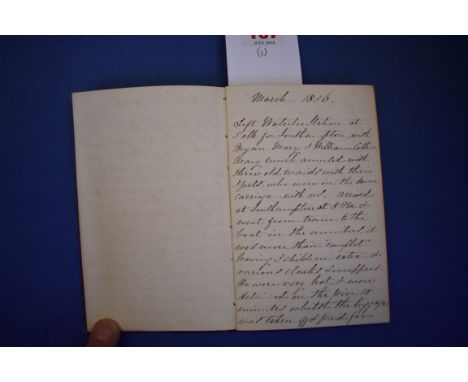 (1)
March 1856.
Left Waterloo Station at
5 o'clk for Southampton with
Bryan, Mary & William Collier
Mary much amused with
three old maids with their
who were in the same
carriage with us. arrived
at Southampton at 8 PM. &
went from train to the
boat in the omnibus, it
was more than complet
having 3 children extra &
various cloaks & wrappers.
We were very hot, & were
detained on the pier 10
minutes whilst the luggage
was taken off & paid for